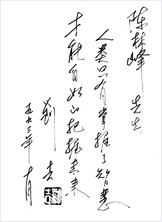 陈林峰 先生
人类只有掌握了智慧
才能自如地把握未来
刘吉
三年 月